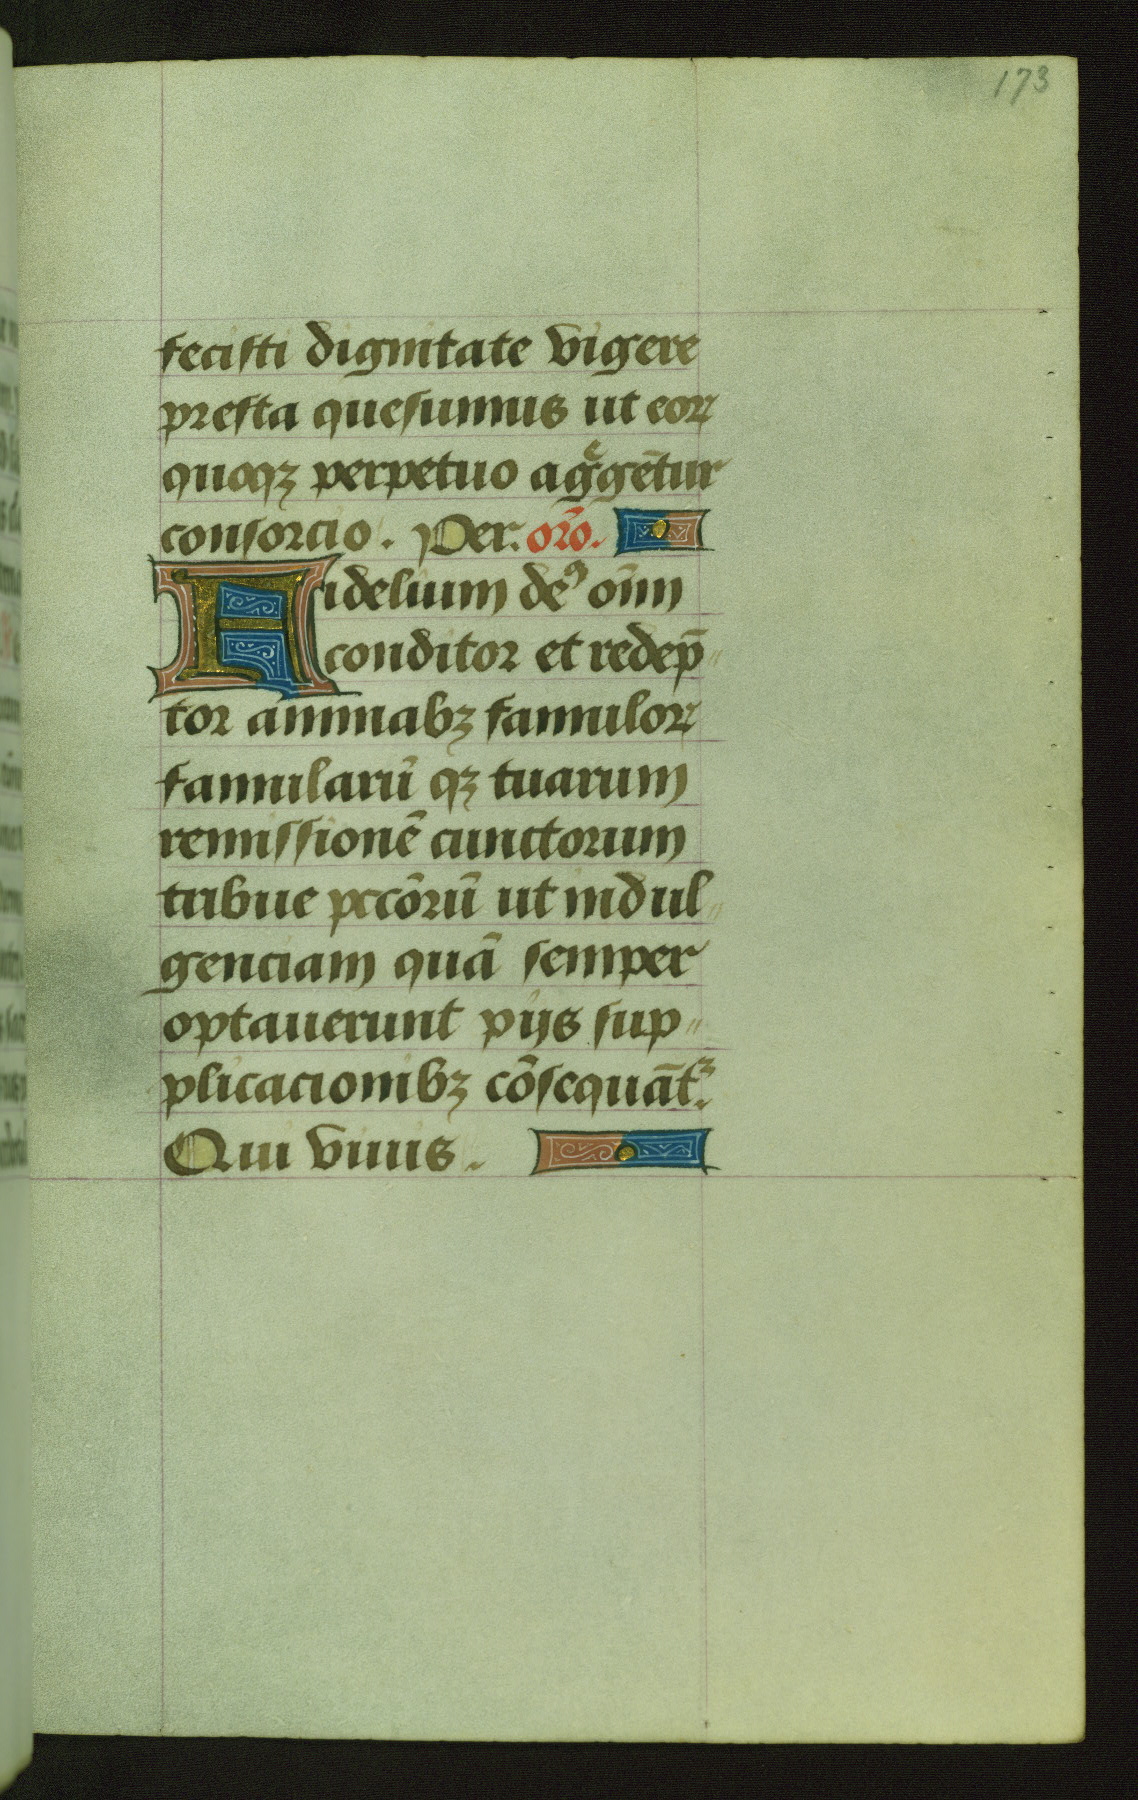 173
fecisti dignitate vigere
presta quesumus ut eoꝝ
quoqꝫ perpetuo aggͤgēt̄ur
consorcio. Per. or̄o.
Fidelium deꝰ om̄
conditor et redep̄〃
tor animabꝫ famuloꝝ
famularū qꝫ tuarum
remissionē cunctorum
tribue pccōrū ut indul〃
genciam quā semper
optauerunt pijs sup〃
plicacionibꝫ cōsequāt᷑.
Qui viuis.